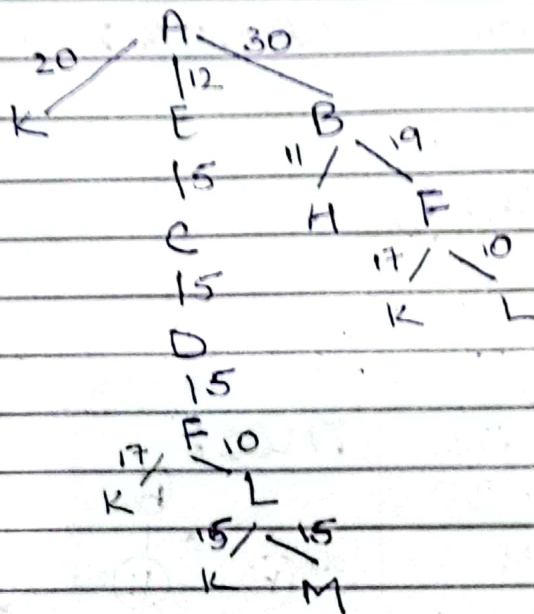 A
20 12 30
K E B
5 11 19
C H F
5 17 10
D K L
5
F
17 10
K L
15 15
K M